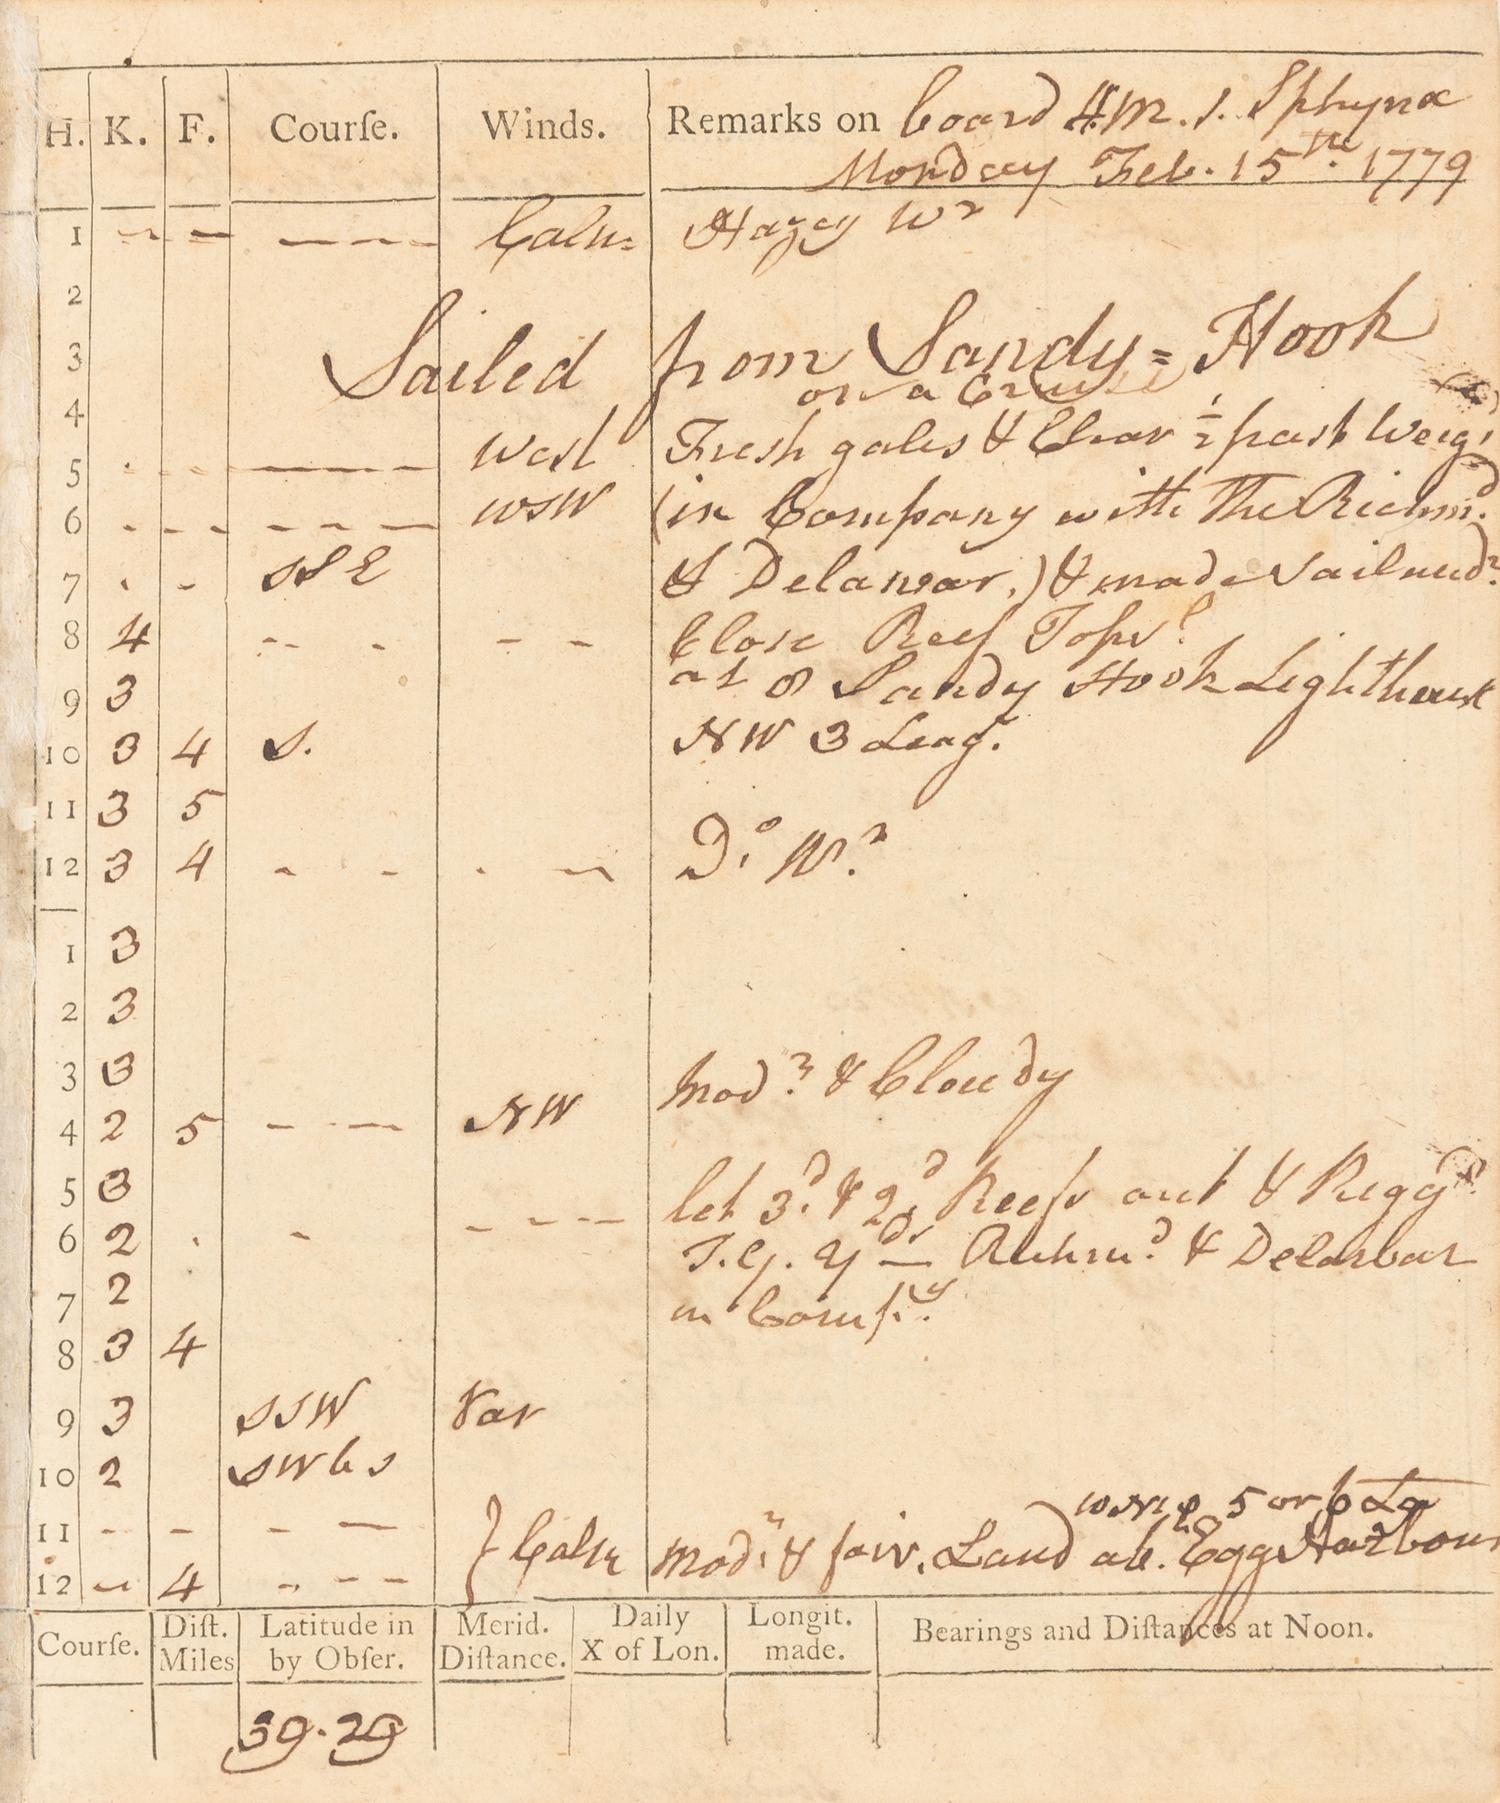 H. K. F. Courſe. Winds. Remarks on board H.M.S. Sphynx
Monday Feb. 15th. 1779
1 - - - - - - - Calm Hazey Wr
2
Sailed from Sandy=Hook
3
on a Cruise
4
West Fresh gales & Clear ½ past Weig'd
5 - - - - - -
6 - - - - - - WSW (in Company with The Richm.d
7 - - SSE & Delawar.) & made Sail und.r
8 4 - - - - Close Reef Tops.l
at 8 Sandy Hook Lighthouse
9 3
10 3 4 S. NW 3 Leag.s
11 3 5
12 3 4 - - - - D.o W.r
1 3
2 3
3 3 Mod.r & Cloudy
4 2 5 - - - NW
5 3 let 3.d & 2.d Reefs out & Rigg.d
6 2 - - - - - T.G. Y.ds — Richm.d & Delawar
7 2 in Comp.y
8 3 4
9 3 SSW Var
10 2 SWbS
WNW 5 or 6 Lg
11 - - - - } Calm Mod.r & fair. Land ab. Egg Harbour
12 - 4 - - -
Courſe. Diſt. Miles Latitude in by Obſer. Merid. Diſtance. Daily X of Lon. Longit. made. Bearings and Diſtances at Noon.
39.29